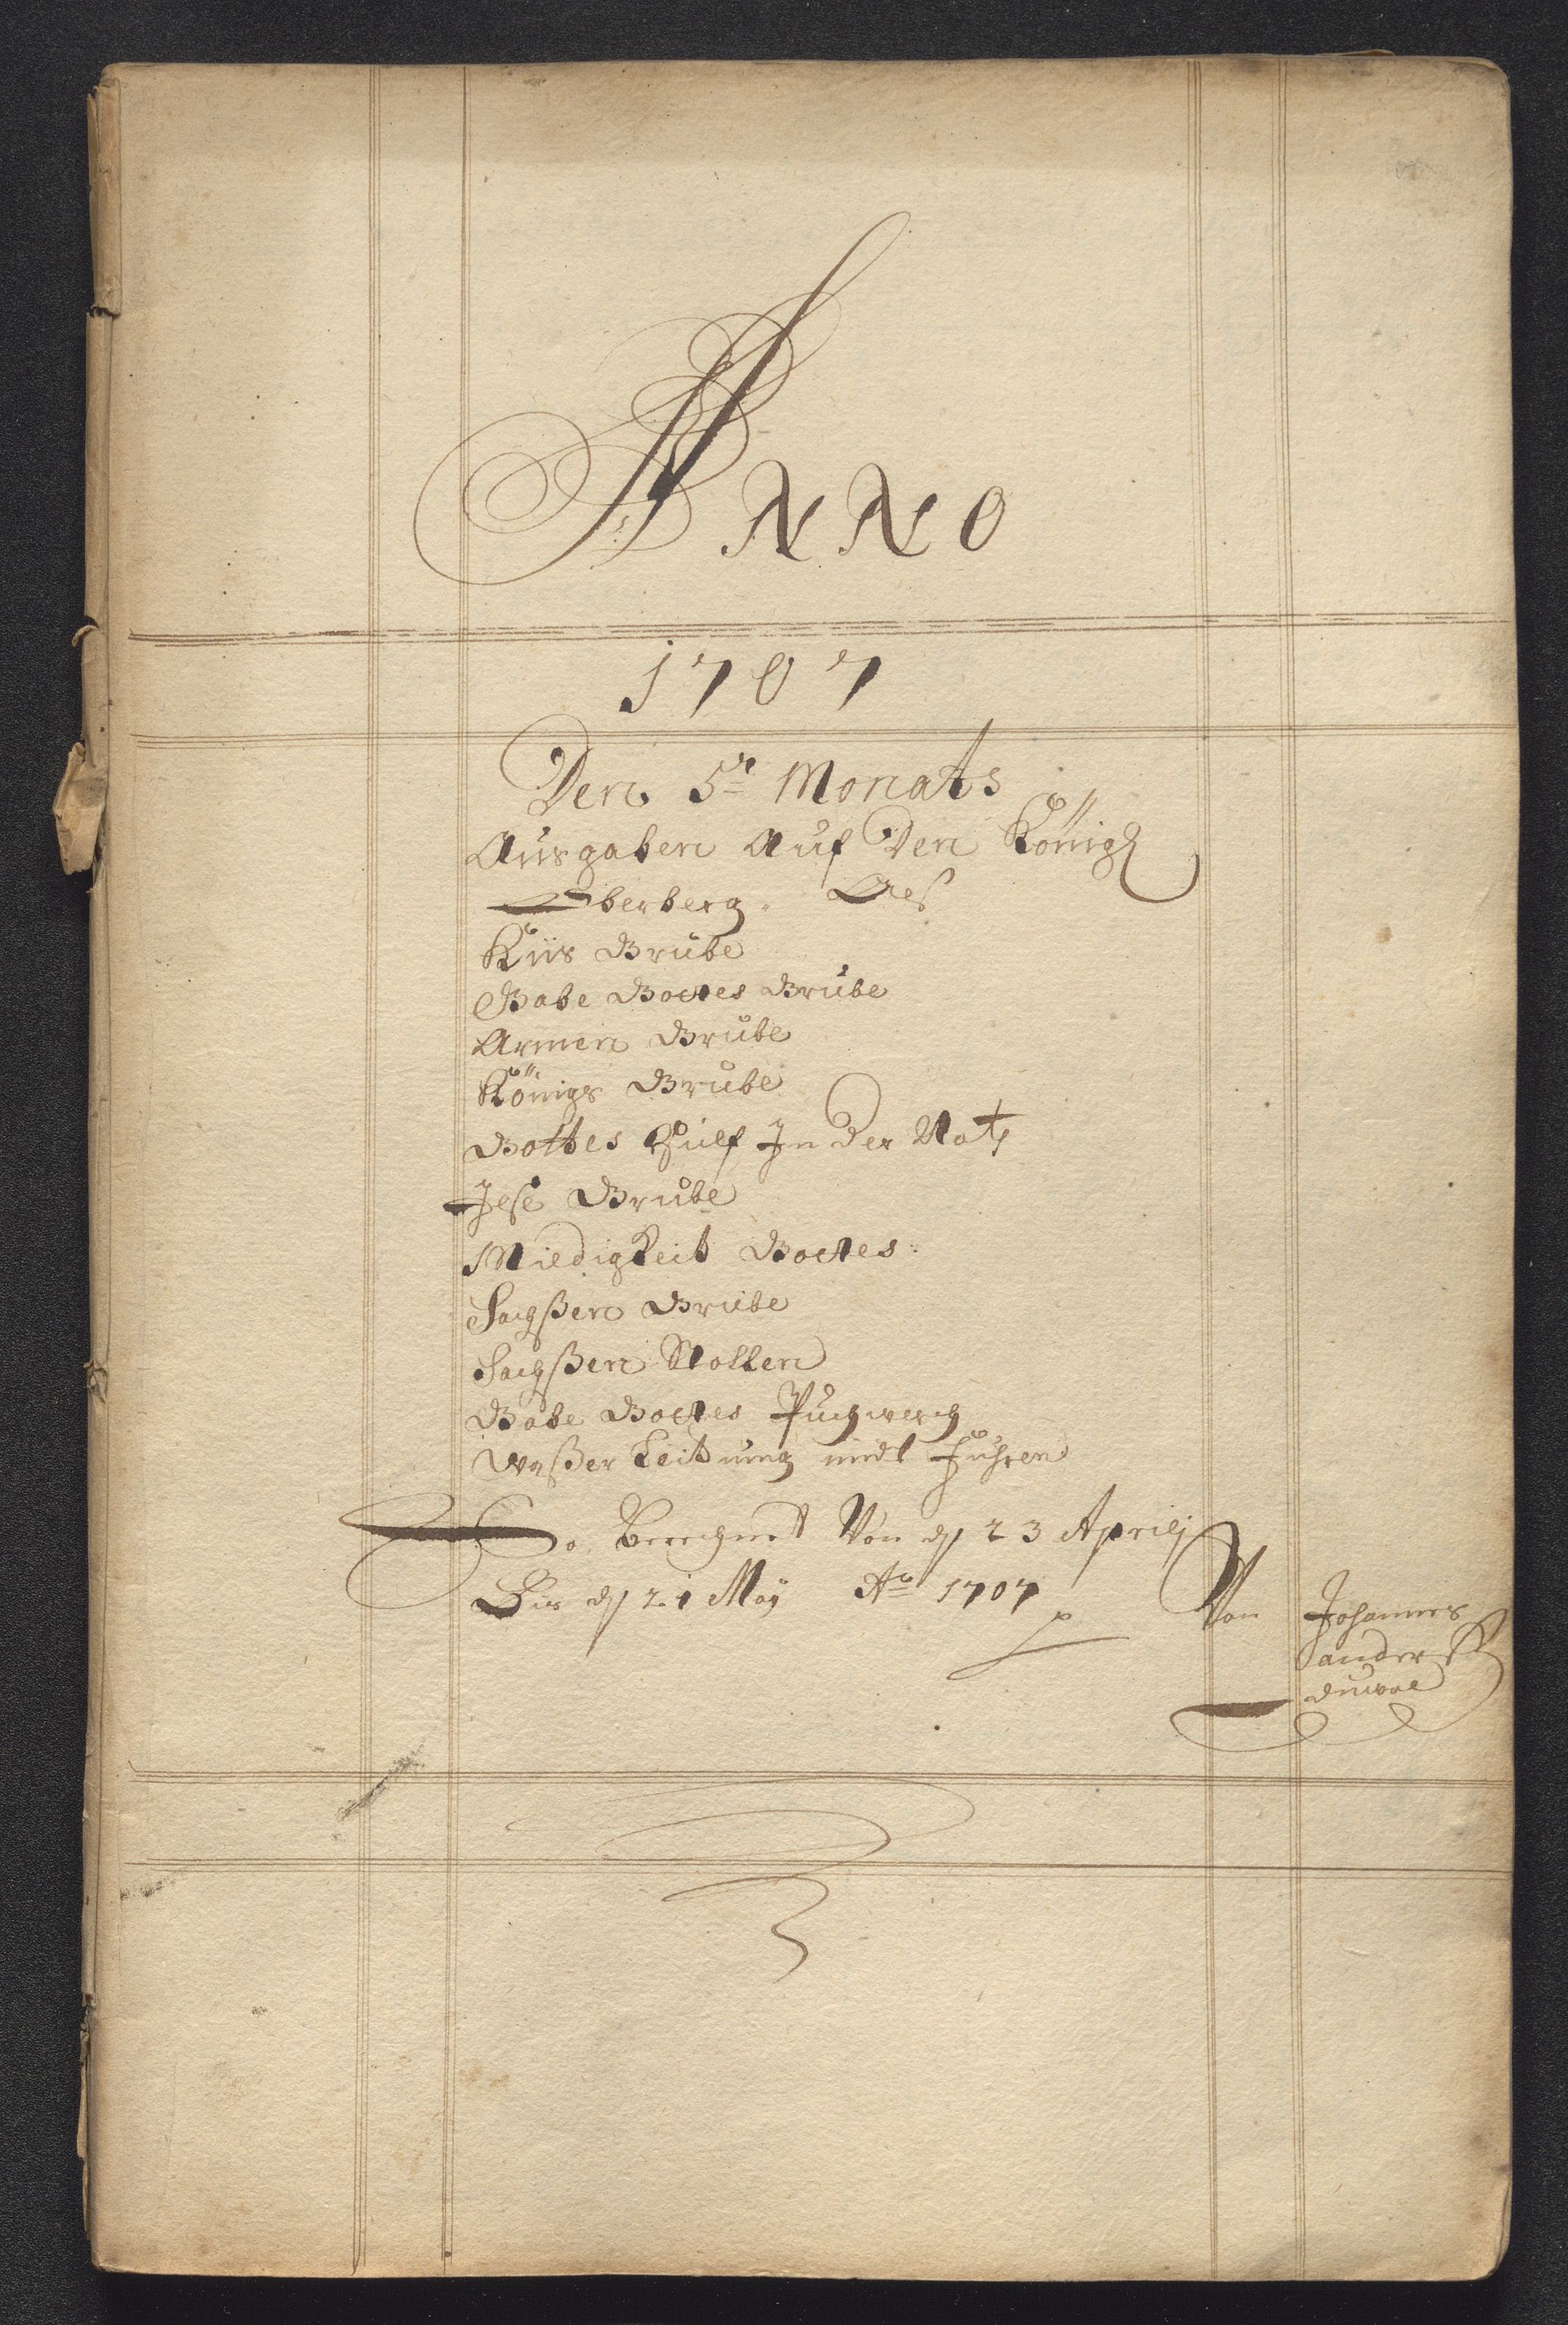 ANNO
1707
Den 5ᵗ Monats
Ausgaben Auf Den Königl
Oberberg. Als
Kiis Grube
Gabe Gottes Grube
Armen Grube
Königs Grube
Gottes Hülf In der Noht
Grube
Mildigkeit Gottes:
Sachßen Grube
Sachßen Stollen
Gabe Gottes Puchwerch
Waßer Leitung undt Fuhren
So Berechnet Von d 23 Aprily
Bis d 21 May Aᵒ 1707
Von Johannes